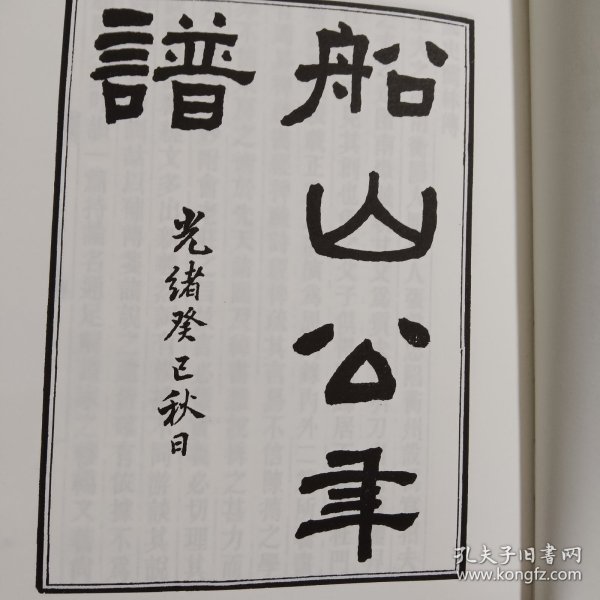 船山公年
譜
光緒癸巳秋日
孔夫子旧书网
www.kongfz.com